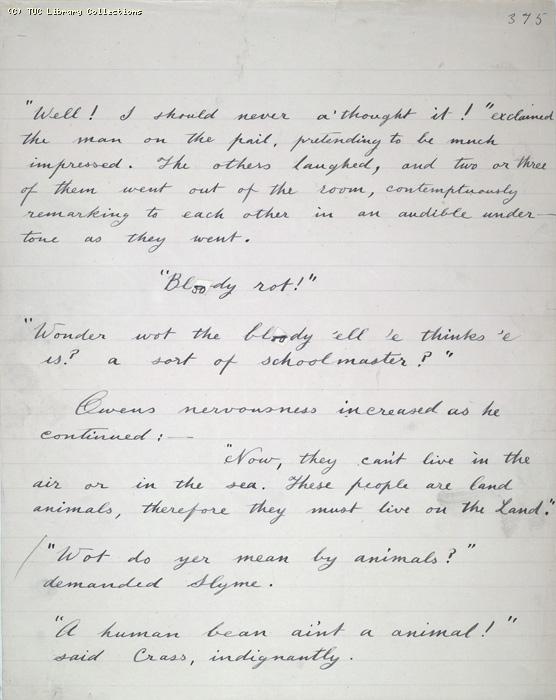 (C) TUC Library Collections
375
"Well! I should never a' thought it!" exclaimed
the man on the pail, pretending to be much
impressed. The others laughed, and two or three
of them went out of the room, contemptuously
remarking to each other in an audible under-
tone as they went.
"Bloody rot!"
"Wonder wot the bloody 'ell 'e thinks 'e
is? a sort of schoolmaster?"
Owens nervousness increased as he
continued:—
"Now, they can't live in the
air or in the sea. These people are land
animals, therefore they must live on the Land."
/ "Wot do yer mean by animals?"
demanded Slyme.
"A human bean ain't a animal!"
said Crass, indignantly.